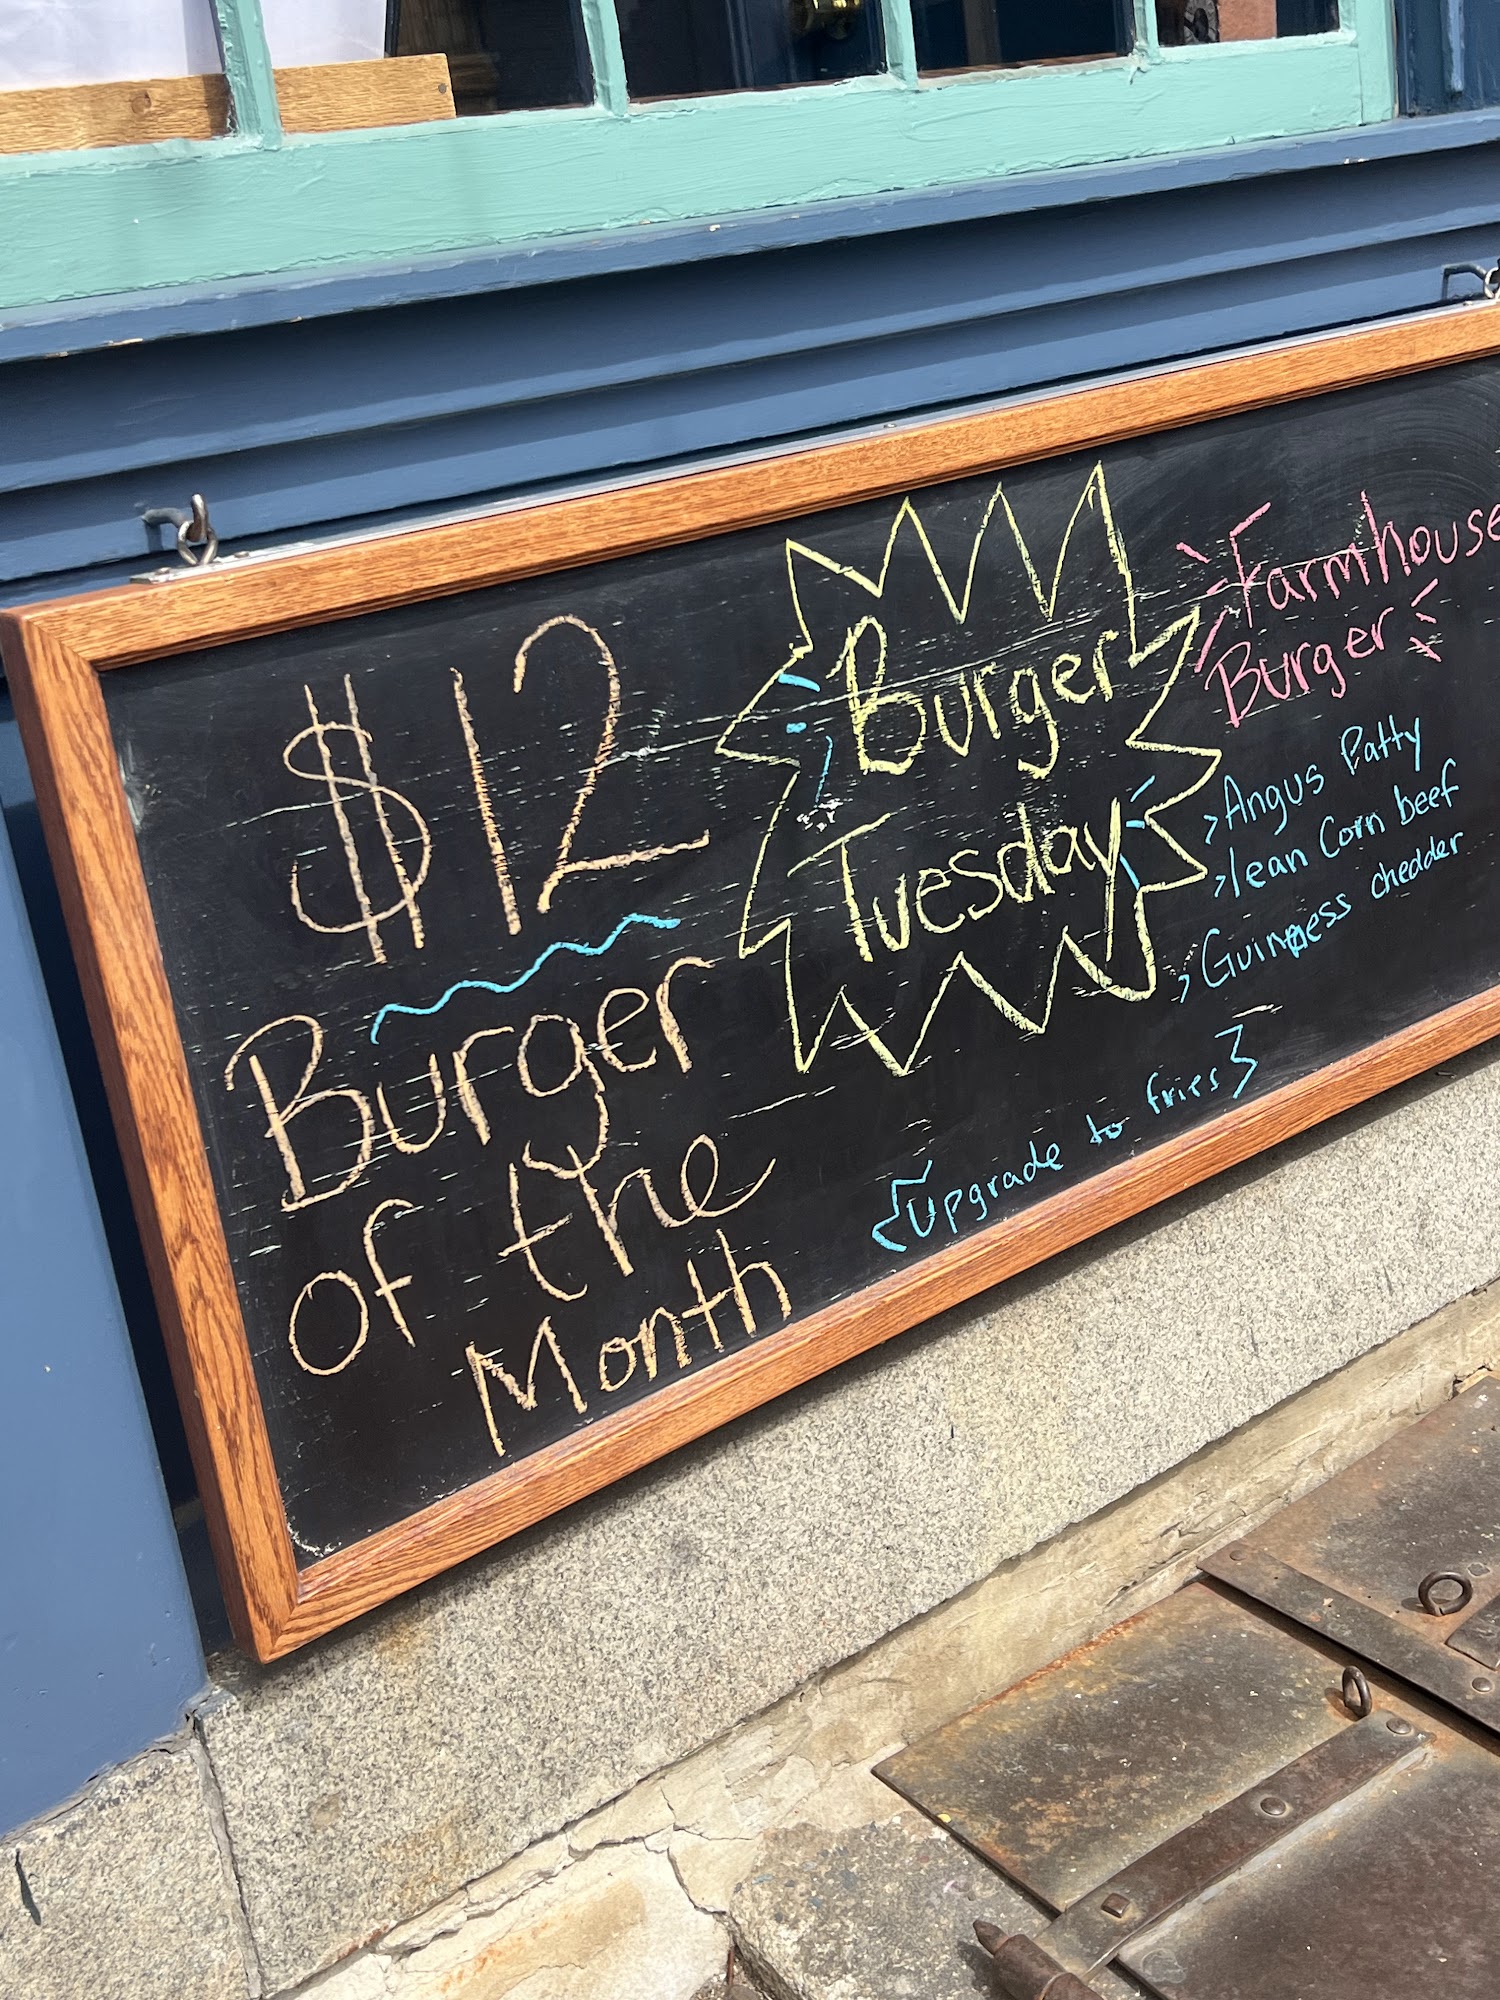 $12
Burger
of the
Month
Burger
Tuesday
Farmhouse
Burger
>Angus Patty
>lean Corn beef
>Guinness chedder
{Upgrade to fries}